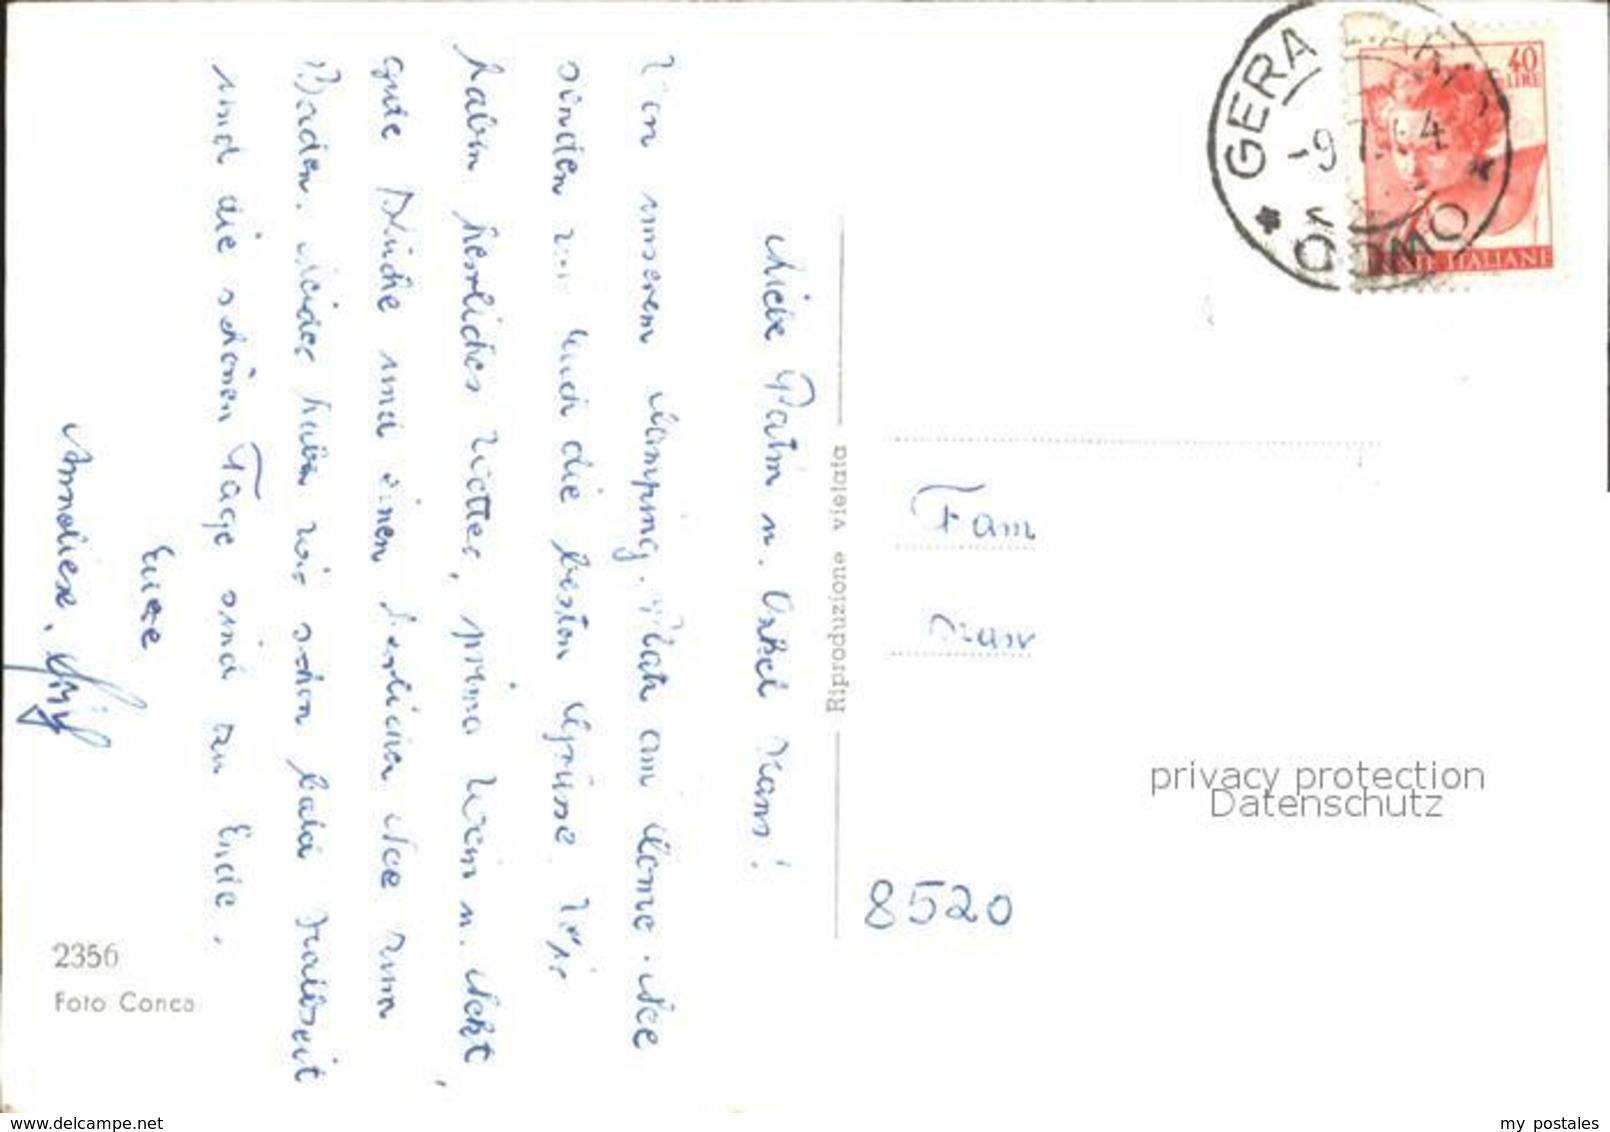 Liebe Patin u. Onkel Hans!
Von unserem Camping-Platz am Come-See
senden wir Euch die besten Grüsse. Wir
haben herrliches Wetter, prima Wein u. Sekt,
gute Küche und einen herrlichen See zum
Baden. Leider haben wir schon bald Halbzeit
und die schönen Tage sind zu Ende.
Eure
Anneliese,
2356
Foto Conca
Riproduzione vietata
GERA LARIO
-9.7.64
COMO
40
LIRE
POSTE ITALIANE
Fam
8520
privacy protection
Datenschutz
www.delcampe.net
my postales